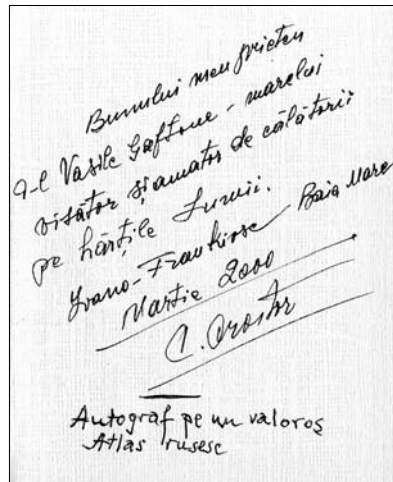 Bunului meu prieten
d-l Vasile Gaftone - marelui
visător și amator de călătorii
pe hărțile Lumii.
Ivano-Frankiosc Baia Mare
Martie 2000
C.
Autograf pe un valoros
Atlas rusesc